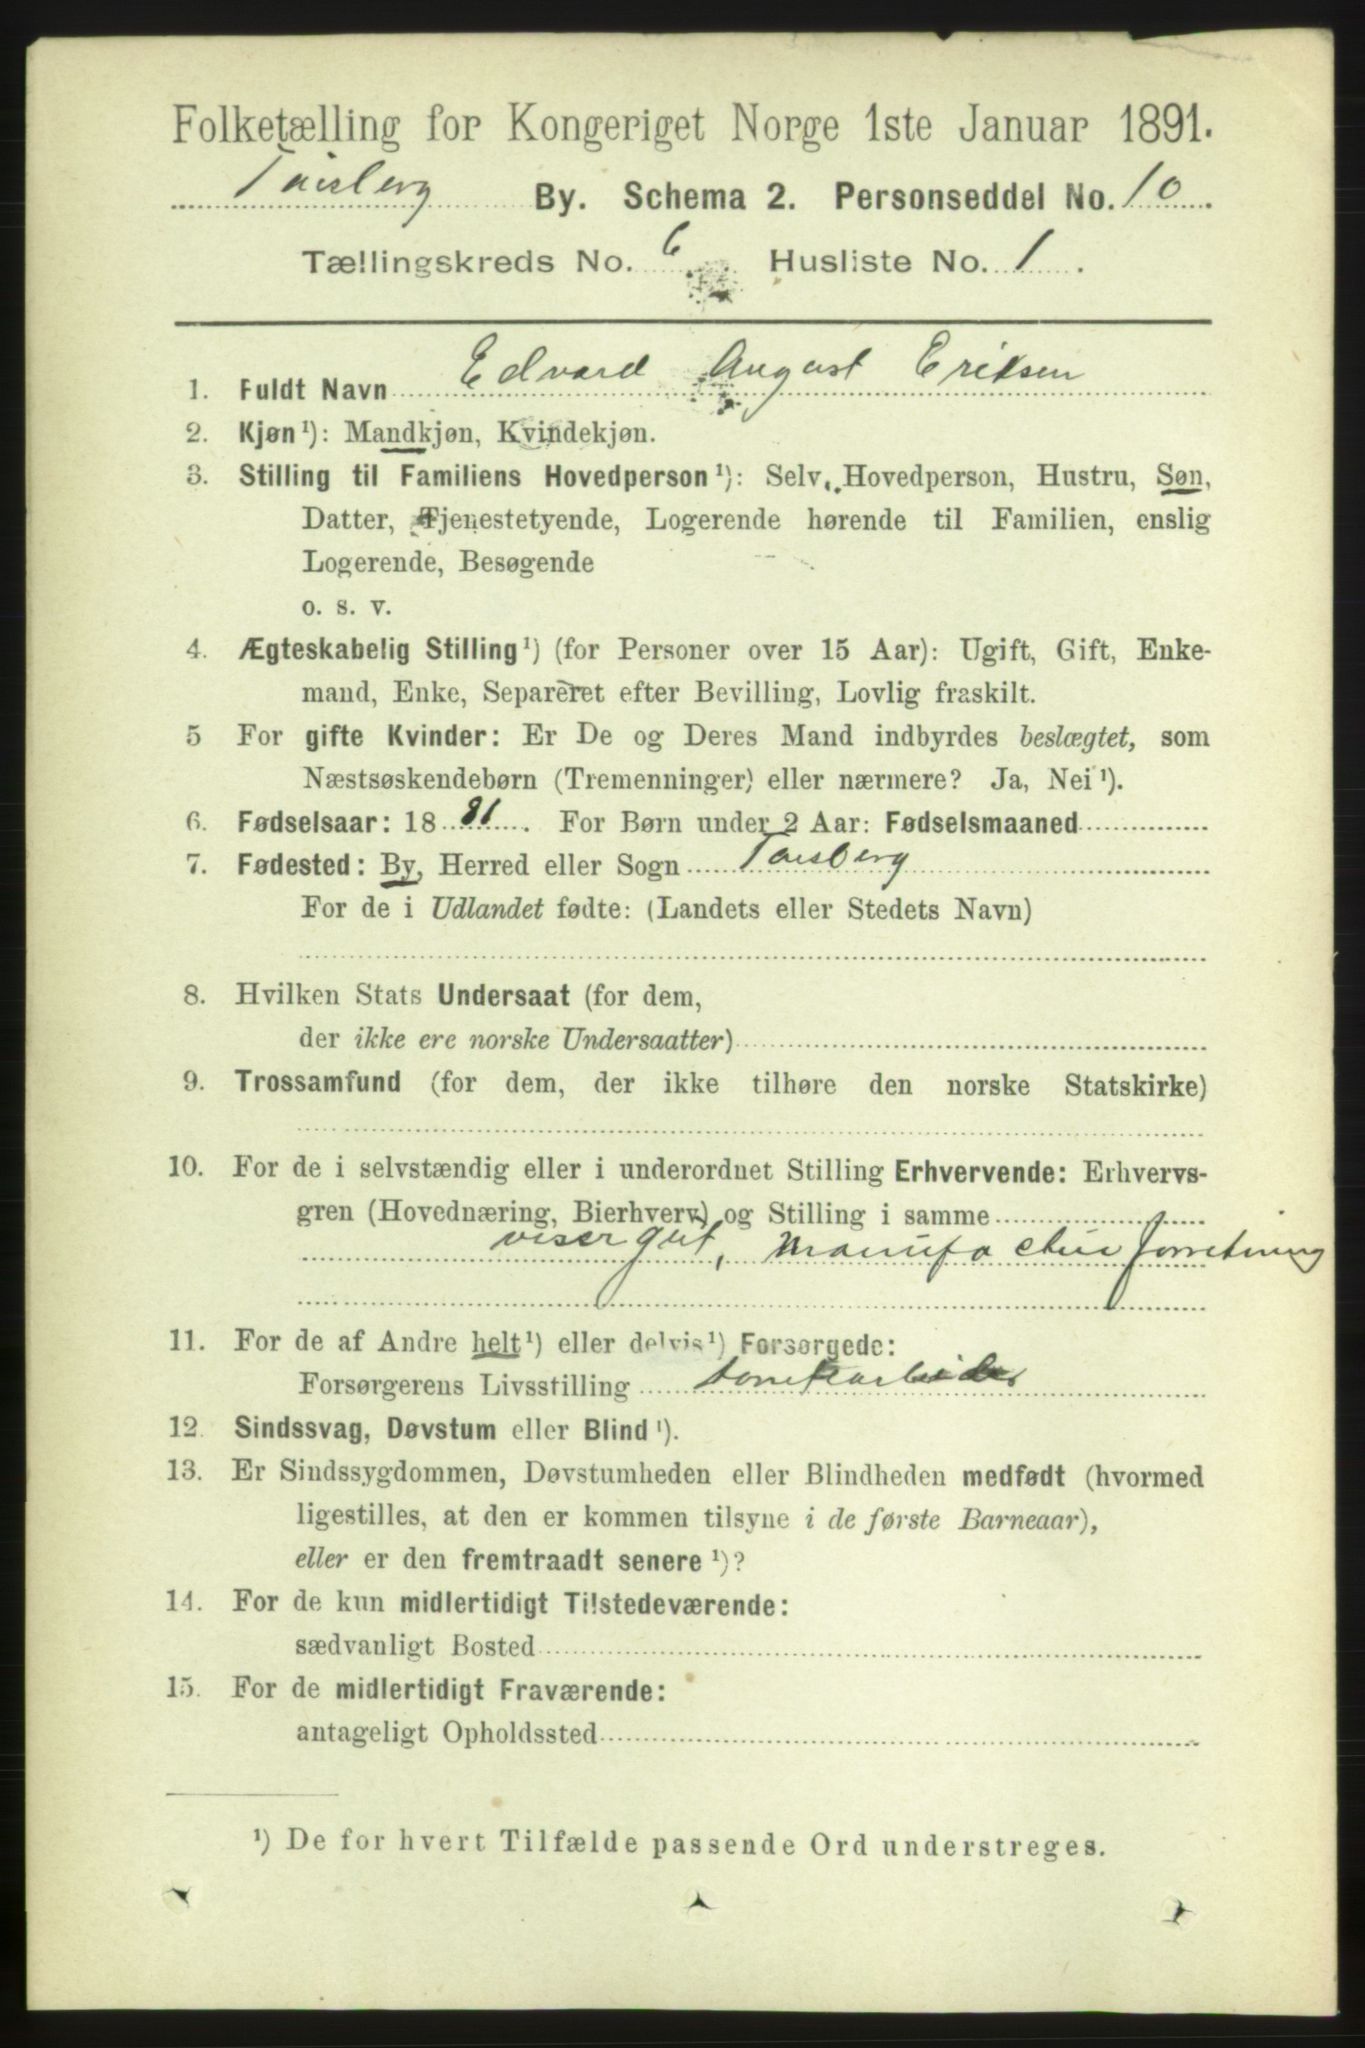 Folketælling for Kongeriget Norge 1ste Januar 1891.
Tønsberg By. Schema 2. Personseddel No. 10
Tællingskreds No. 6 Husliste No. 1
1. Fuldt Navn Edvard August Eriksen
2. Kjøn¹): Mandkjøn, Kvindekjøn.
3. Stilling til Familiens Hovedperson¹): Selv, Hovedperson, Hustru, Søn,
Datter, Tjenestetyende, Logerende hørende til Familien, enslig
Logerende, Besøgende
o. s. v.
4. Ægteskabelig Stilling¹) (for Personer over 15 Aar): Ugift, Gift, Enke-
mand, Enke, Separeret efter Bevilling, Lovlig fraskilt.
5 For gifte Kvinder: Er De og Deres Mand indbyrdes beslægtet, som
Næstsøskendebørn (Tremenninger) eller nærmere? Ja, Nei¹).
6. Fødselsaar: 18 81. For Børn under 2 Aar: Fødselsmaaned
7. Fødested: By, Herred eller Sogn Tønsberg
For de i Udlandet fødte: (Landets eller Stedets Navn)
8. Hvilken Stats Undersaat (for dem,
der ikke ere norske Undersaatter)
9. Trossamfund (for dem, der ikke tilhøre den norske Statskirke)
10. For de i selvstændig eller i underordnet Stilling Erhvervende: Erhvervs-
gren (Hovednæring, Bierhverv) og Stilling i samme
visergut, Manufacturforretning
11. For de af Andre helt¹) eller delvis¹) Forsørgede:
Forsørgerens Livsstilling
12. Sindssvag, Døvstum eller Blind¹).
13. Er Sindssygdommen, Døvstumheden eller Blindheden medfødt (hvormed
ligestilles, at den er kommen tilsyne i de første Barneaar),
eller er den fremtraadt senere¹)?
14. For de kun midlertidigt Tilstedeværende:
sædvanligt Bosted
15. For de midlertidigt Fraværende:
antageligt Opholdssted
¹) De for hvert Tilfælde passende Ord understreges.